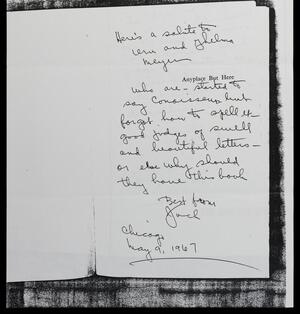 Here's a salute to
Vern and Thelma
Meyer
Anyplace But Here
who are – started to
say Conoisseurs but
forgot how to spell it –
good judges of small
and beautiful letters –
or else why should
they have this book
Best from
Jack
Chicago
May 9, 1967